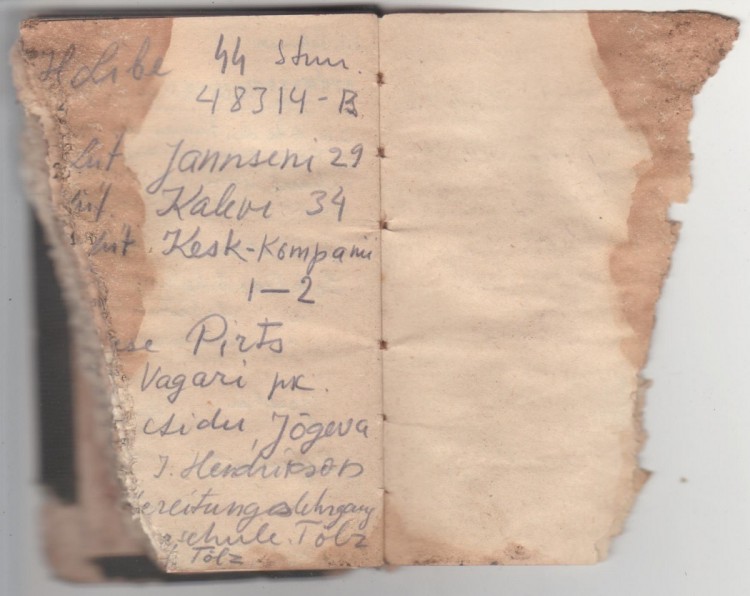 44 Stmm.
48314-B
Jannseni 29
Kalevi 34
Kesk-Kompanii
1-2
Pirts
Vagari pk.
Jõgeva
J. Hendrikson
ereitungslehrgang
schule Tölz
Tölz